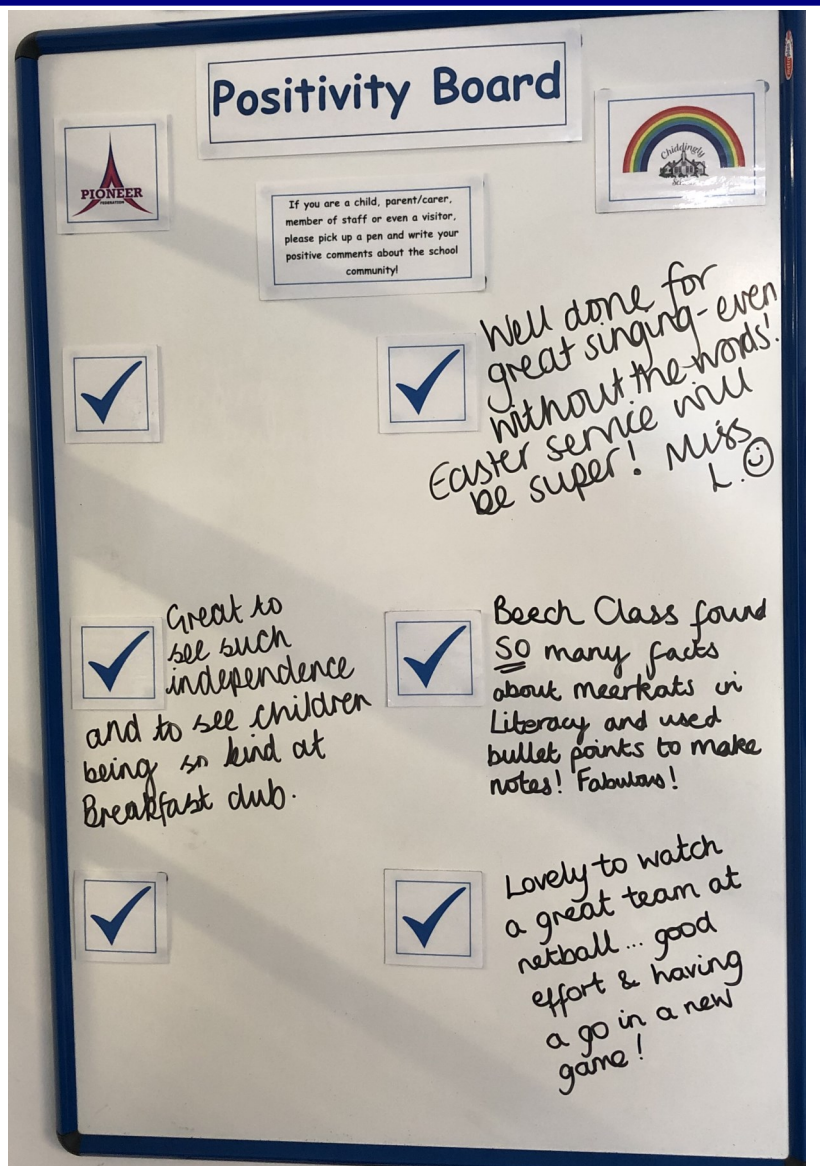 Positivity Board
PIONEER
FEDERATION
Chiddingly
If you are a child, parent/carer,
member of staff or even a visitor,
please pick up a pen and write your
positive comments about the school
community!
Well done for
great singing - even
without the words!
Easter service will
be super! Miss
L.
Great to
see such
independence
and to see children
being so kind at
Breakfast club.
Beech Class found
SO many facts
about meerkats in
Literacy and used
bullet points to make
notes! Fabulous!
Lovely to watch
a great team at
netball... good
effort & having
a go in a new
game!